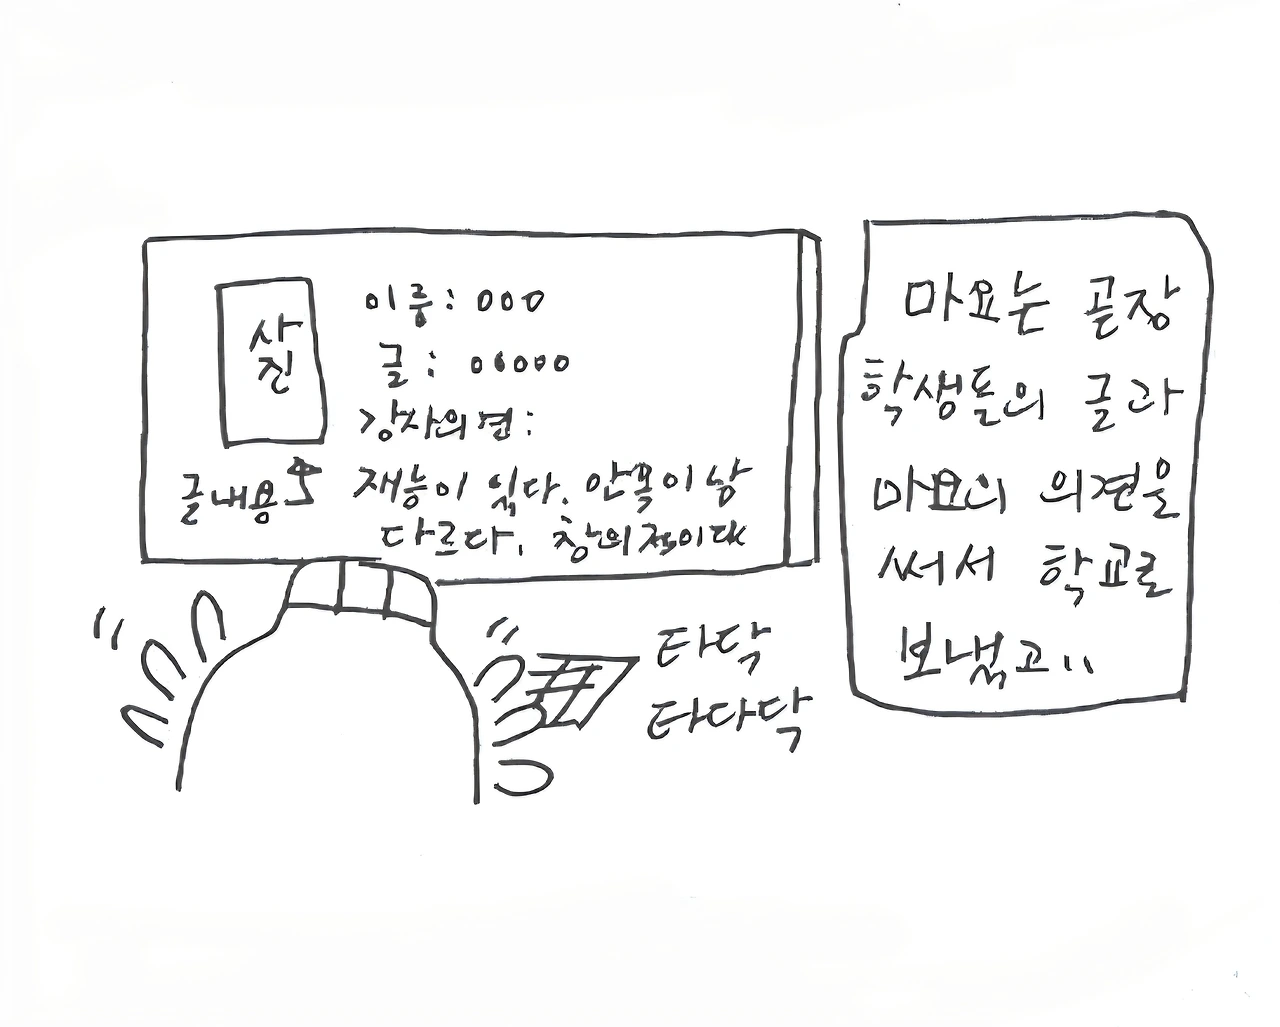 사진
이름: 000
글: 00000
강사의견:
글내용
재능이 있다. 안목이 남
다르다. 창의적이다
타닥
타다닥
마요는 곧장
학생들의 글과
마요의 의견을
써서 학교로
보냈고..